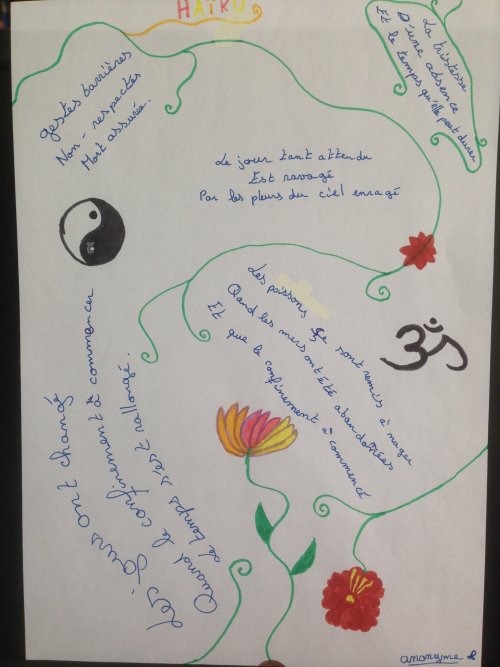 HAÏKU
La tristesse
D'une absence
Et le temps qu'elle peut durer
gestes barrières
Non-respectés
Mort assurée.
Le jour tant attendu
Est ravagé
Par les pleurs du ciel enragé
Les poissons se sont remis à nager
Quand les mers ont été abandonnées
Et que le confinement a commencé
Les jours ont changé
Quand le confinement a commencer
Le temps s'est rallongé.
anonyme